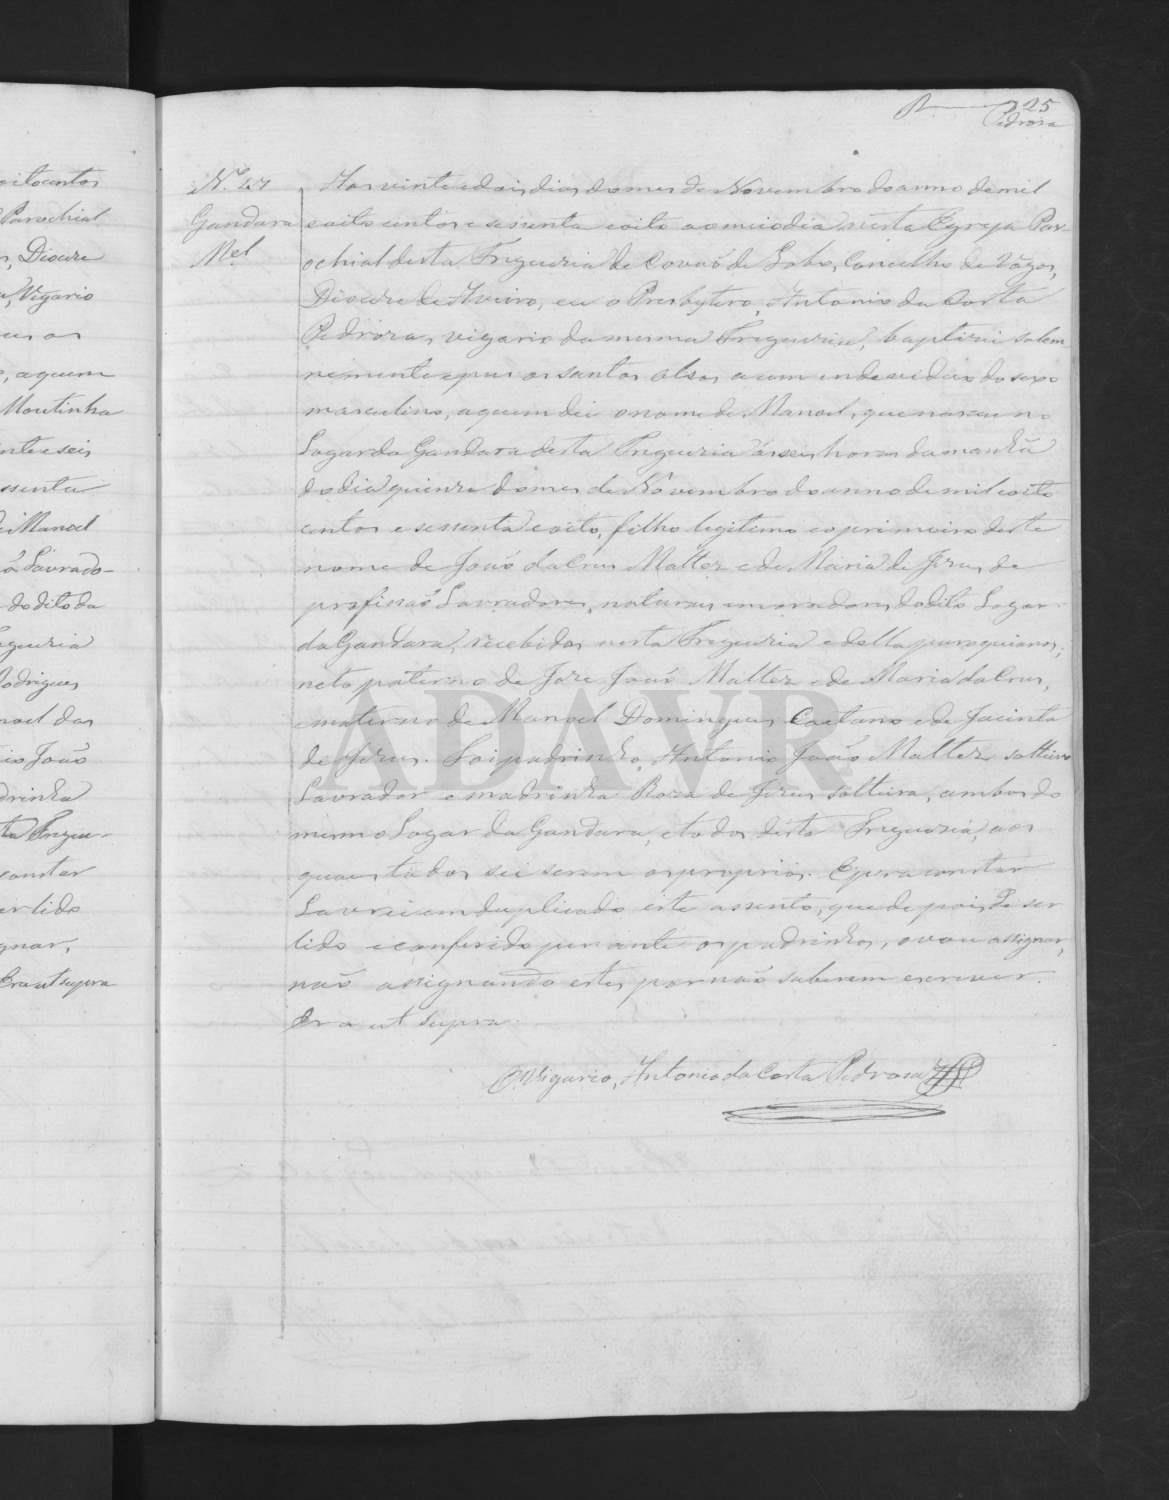 oitocentos
Parochial
Diocese
Vigario
, aquem
Moutinha
nte e seis
ssenta
Manoel
Lavrado-
do dito da
eguezia
Rodrigues
noel da
João
drinha
ta Fregue-
constar
er lido
gnar,
Era ut supra
25
Pedrosa
N.º 47
Gandara
M.el
Aos vinte e dois dias do mes de Novembro do anno de mil
oito centos e sessenta e oito ao meio dia nésta Egreja Par-
ochial desta Freguezia de Covaõ de Lobo, Concelho de Vágos,
Diocese de Aveiro, eu o Presbytero, Antonio da Costa
Pedrosa, vigario da mesma Freguezia, baptizei solem
nemente e pus os santos oleos a um endeviduo do sexo
masculino, a quem dei o nome de Manoel, que nasceu no
Logar da Gandara desta Freguezia ás seis horas da manhã
do dia quinze do mes de Novembro do anno de mil oito
centos e sessenta e oito, filho legitimo e o primeiro deste
nome de João da Crus Malta e de Maria de Jezus, de
profissaõ Lavradores, naturaes e moradores do dito Logar
da Gandara, recebidos nesta Freguezia e della paroquianos;
neto paterno de Joze João Malta e de Maria da Crus,
e materno de Manoel Domingues Caetano e de Jacinta
de Jezus. Foi padrinho, Antonio João Malta solteiro
Lavrador e madrinha Roza de Jezus solteira, ambos do
mesmo Logar da Gandara, e todos desta Freguezia, aos
quaes todos sei serem os proprios. E para constar
Lavrei em duplicado este assento, que depois de ser
lido e conferido perante os padrinhos, o vou assignar,
naõ assignando estes por naõ saberem escrever.
Era ut supra.
O Vigario, Antonio da Costa Pedrosa
ADAVR